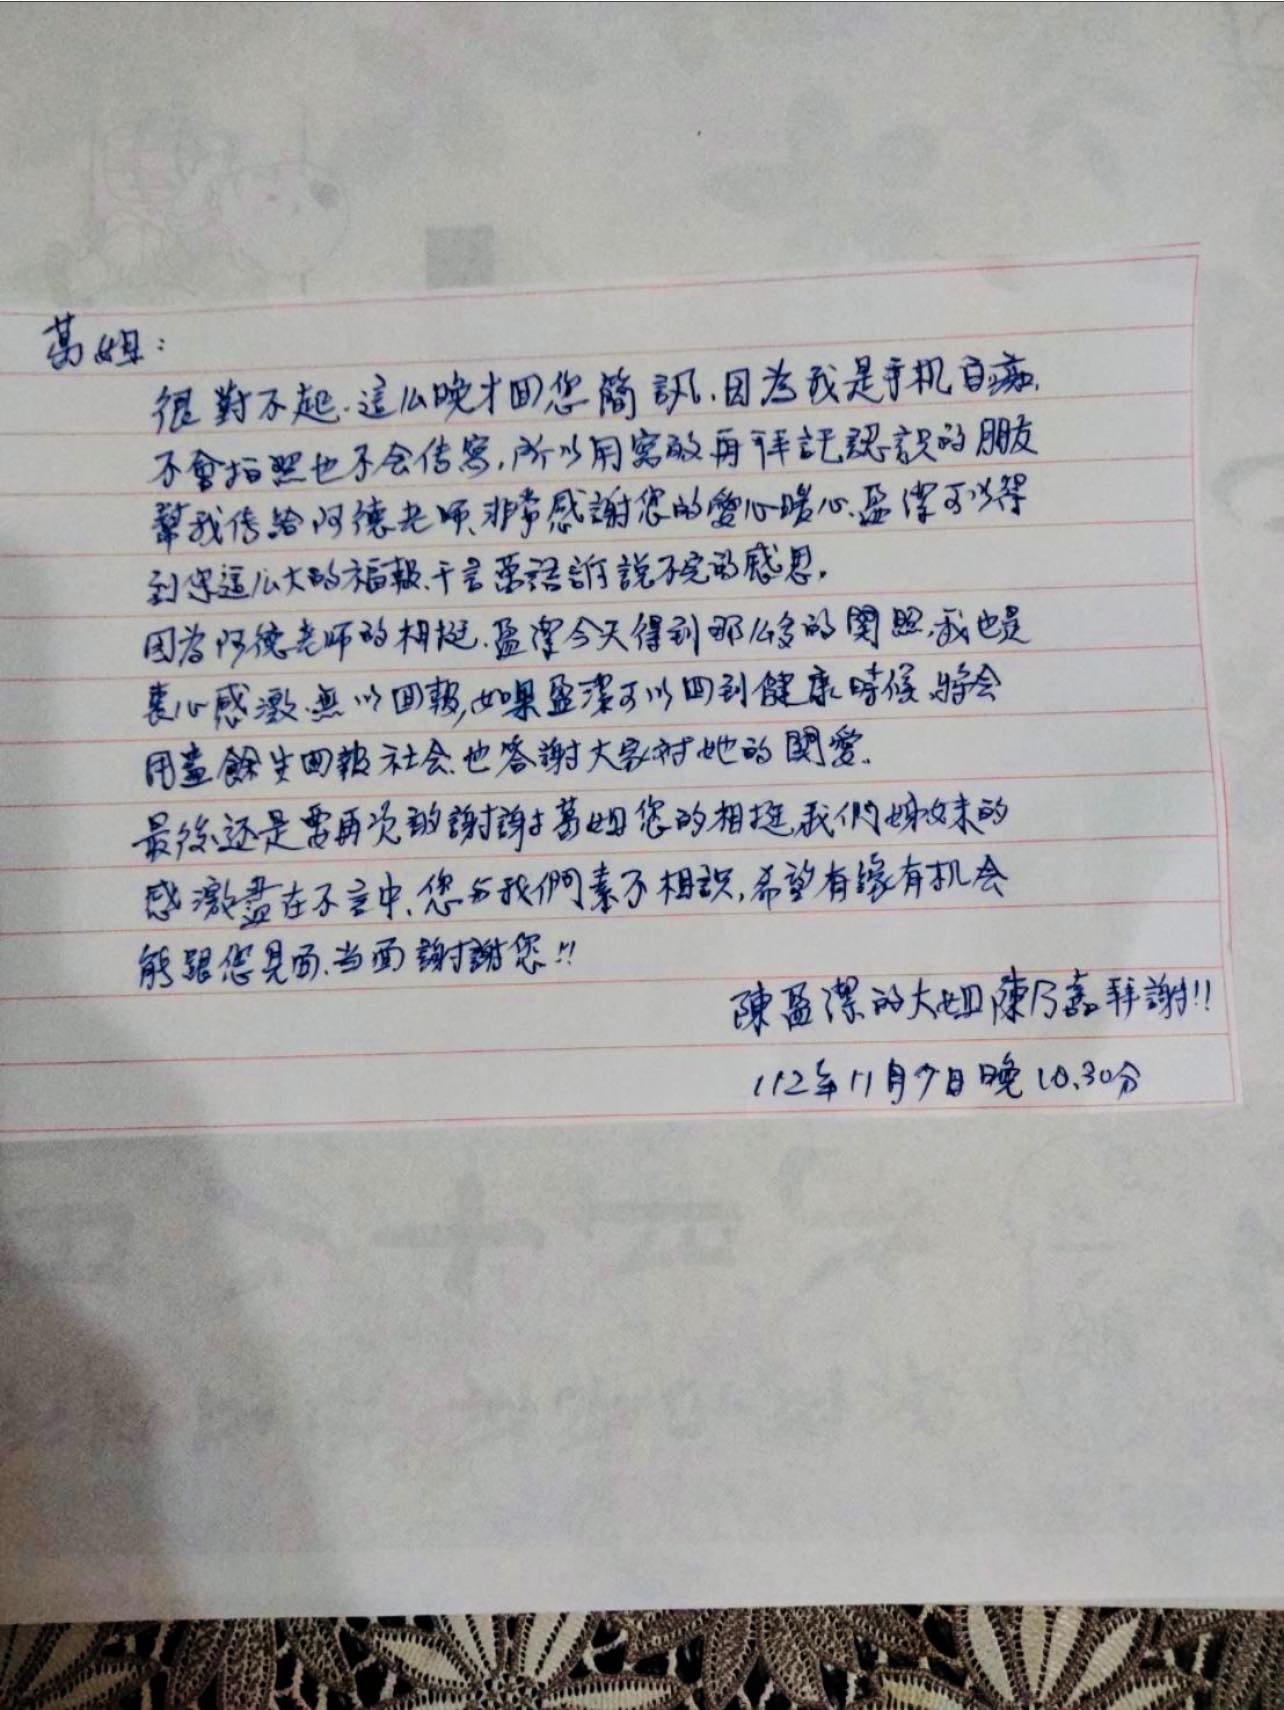 葛姐：
很對不起.這么晚才回您簡訊.因為我是手机白痴.
不會拍照也不会传寫,所以用寫的再拜託認识的朋友
幫我传給阿德老师.非常感謝您的愛心暖心.盈潔可以得
到您這么大的福報.千言萬語訴說不完的感恩.
因為阿德老师的相挺.盈潔今天得到那么多的関照.我也是
衷心感激.無以回報,如果盈潔可以回到健康時候.將会
用盡餘生回報社会.也答謝大家对她的関愛.
最後还是要再次的謝謝葛姐您的相挺.我們姊妹的
感激盡在不言中.您与我們素不相識.希望有緣有机会
能跟您見面.当面謝謝您!!
陳盈潔的大姐陳乃嘉拜謝!!
112年11月7日晚10.30分